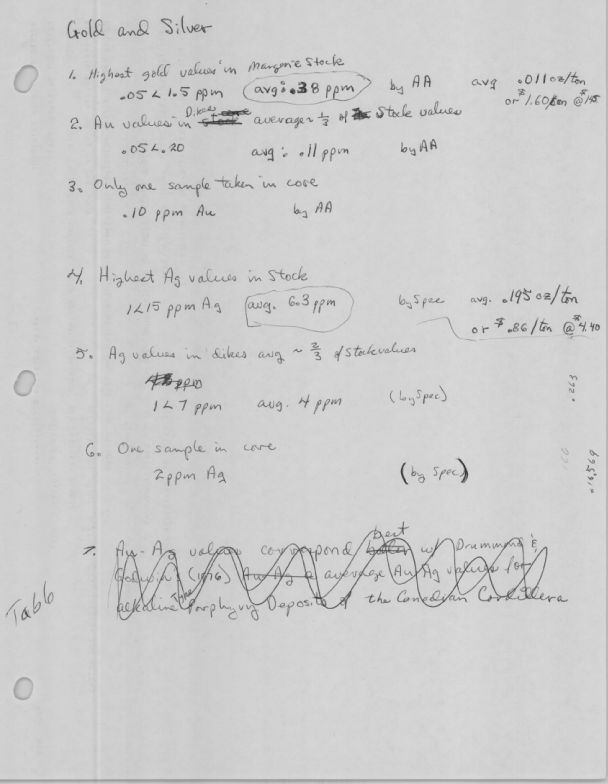 Gold and Silver
1. Highest gold values in Margerie Stock
.05 < 1.5 ppm avg: .38 ppm by AA avg .011 oz/ton
or $1.60/ton @ $145
2. Au values in Dikes average ~ 1/3 of Stock values
.05 < .20 avg: .11 ppm by AA
3. Only one sample taken in core
.10 ppm Au by AA
4. Highest Ag values in Stock
1<15 ppm Ag avg. 6.3 ppm by Spec avg. .195 oz/ton
or $.86/ton @ $4.40
5. Ag values in dikes avg ~ 2/3 of Stock values
1<7 ppm avg. 4 ppm (by Spec)
6. One sample in core
2 ppm Ag (by Spec)
7. Au-Ag values correspond best w/ Drummond &
Godwin (1976) average Au Ag values for
alkaline Type Porphyry Deposits of the Canadian Cordillera
Tab 6